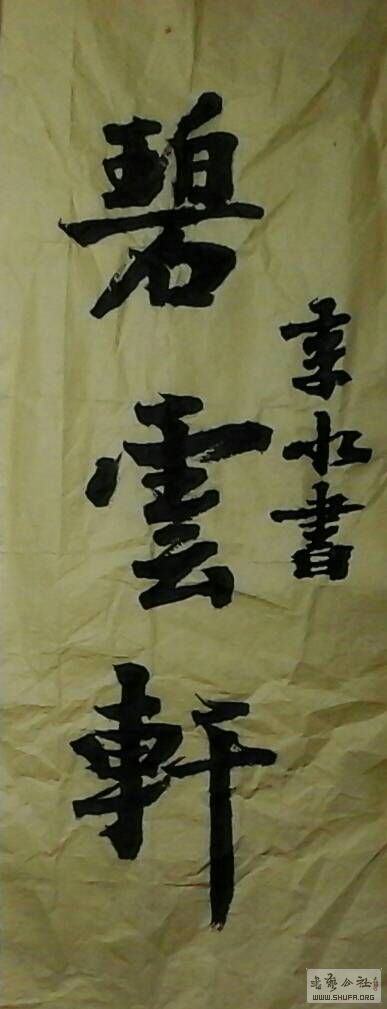 碧雲軒
水書
书艺公社
WWW.SHUFA.ORG